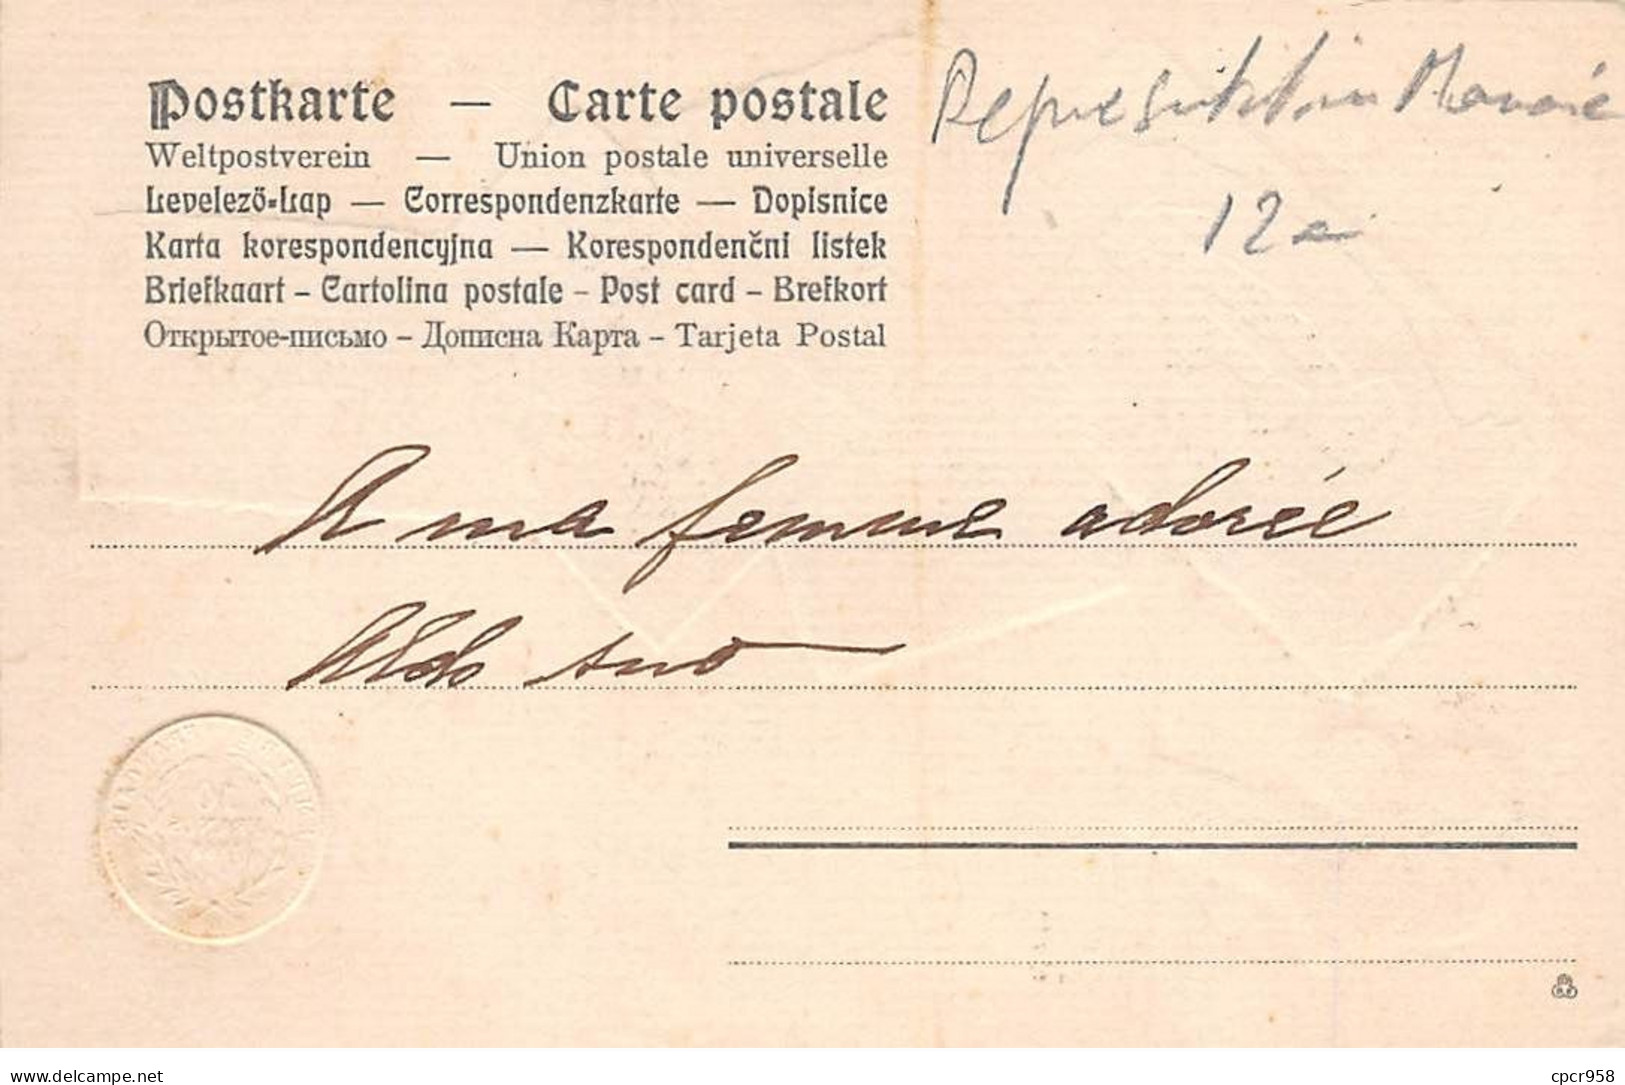 Postkarte — Carte postale
Weltpostverein — Union postale universelle
Levelező-Lap — Correspondenzkarte — Dopisnice
Karta korespondencyjna — Korespondenční listek
Briefkaart – Cartolina postale – Post card – Brefkort
Открытое-письмо – Дописна Карта – Tarjeta Postal
12
A ma femme adorée
Aldo
Delcampe.net
cpcr958